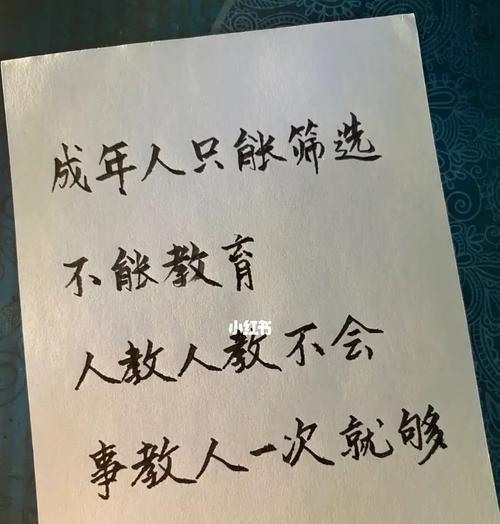 成年人只能筛选
不能教育
小红书
人教人教不会
事教人一次就够